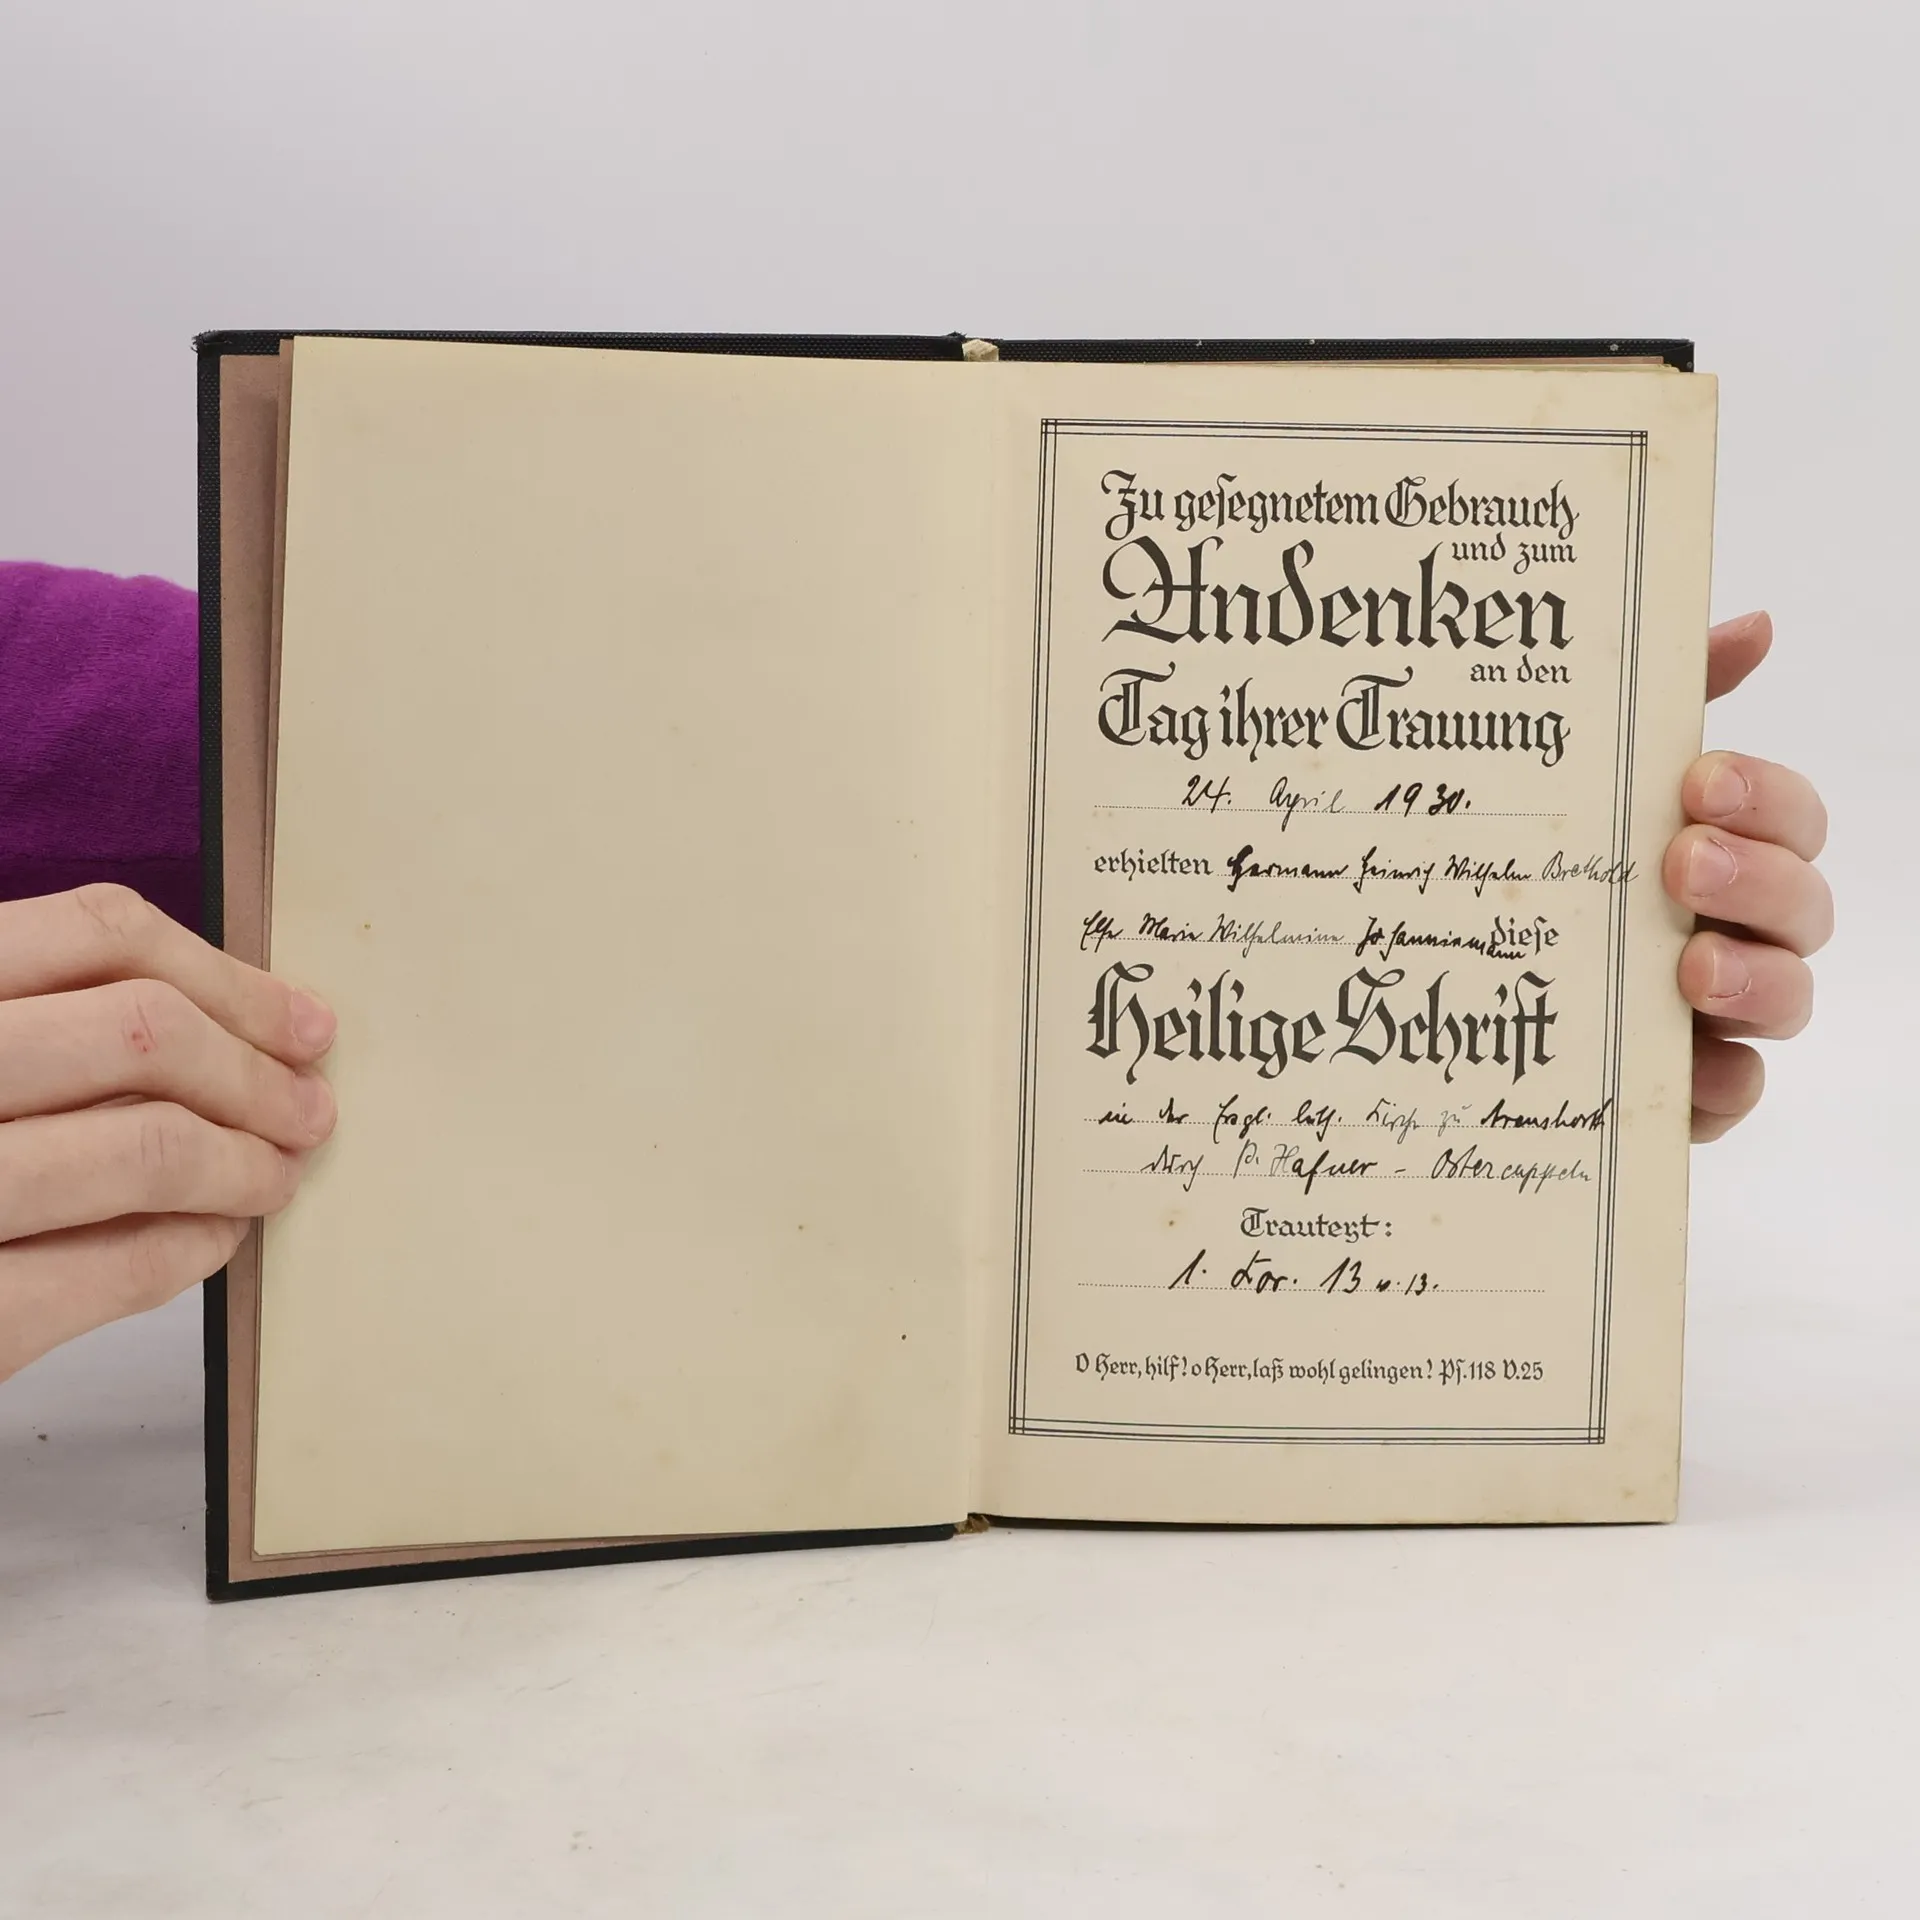 Zu gesegnetem Gebrauch
und zum
Andenken
an den
Tag ihrer Trauung
24. April 1930.
erhielten Hermann Heinrich Wilhelm Brethold
Else Marie Wilhelmine diese
Heilige Schrift
in der Evgl. luth. Kirche zu Arenshorst
durch P. Hafner - Ostercappeln
Trautext:
1. Kor. 13 v. 13.
O Herr, hilf! o Herr, laß wohl gelingen! Ps. 118 V. 25